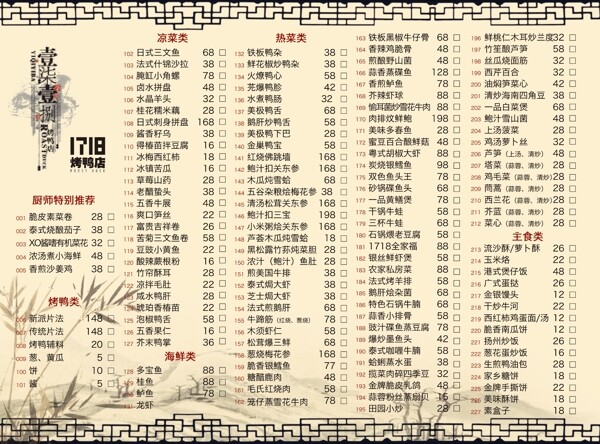 壹柒壹捌
YIQIYIBA
ROASTDUCK
烤鸭店
1718
烤鸭店
ROAST DUCK
厨师特别推荐
001 脆皮素菜卷 28 □
002 泰式烧酿茄子 38 □
003 XO酱嗜有机菜花 32 □
004 浓汤煮小海鲜 48 □
005 香煎沙姜鸡 38 □
烤鸭类
006 新派片法 148 □
007 传统片法 148 □
008 烤鸭辅料 20 □
009 葱、黄瓜 5 □
100 饼 10 □
101 酱 5 □
凉菜类
102 日式三文鱼 68 □
103 法式什锦沙拉 38 □
104 腌缸小角螺 78 □
105 卤水拼盘 48 □
106 水晶羊头 32 □
107 桂花糯米藕 28 □
108 日式刺身拼盘 168 □
109 酱香籽乌 38 □
110 得椿苗拌豆腐 16 □
111 冰梅西红柿 18 □
112 冰镇苦瓜 16 □
113 草莓山药 28 □
114 老醋蛰头 38 □
115 五香牛展 48 □
116 爽口笋丝 22 □
117 富贵吉祥卷 26 □
118 苦菊三文鱼卷 58 □
119 豆豉小黄鱼 22 □
120 酸辣蕨根粉 16 □
121 竹帘酥耳 28 □
122 凉拌毛肚 22 □
123 咸水鸭肝 28 □
124 琥珀香椿苗 22 □
125 泡椒鸭舌 58 □
126 五香果仁 16 □
127 芥末鸭掌 36 □
海鲜类
128 多宝鱼 88 □
129 桂鱼 88 □
130 鲈鱼 78 □
131 龙虾
热菜类
132 铁板鸭杂 38 □
133 鲜花椒炒鸭杂 38 □
134 火燎鸭心 58 □
135 芫爆鸭胗 42 □
136 水煮鸭肠 32 □
137 美极鸭舌 68 □
138 鹅肝炒鸭舌 58 □
139 美极鸭下巴 28 □
140 金巢鸭宝 58 □
141 红烧佛跳墙 168 □
142 鲍汁扣关东参 168 □
143 木瓜炖雪蛤 68 □
144 五谷杂粮烩梅花参 38 □
145 清汤松茸关东参 168 □
146 鲍汁扣三宝 198 □
147 小米粥烩关东参 168 □
148 芦荟木瓜炖雪蛤 18 □
149 黑松露竹荪炖菜胆 28 □
150 浓汁（鲍汁）鱼肚 28 □
151 煎美国牛排 38 □
152 泰式焗大虾 38 □
153 芝士焗大虾 38 □
154 法式煎鹅肝 68 □
155 牛蹄筋（红烧、葱烧） 78 □
156 木须虾仁 58 □
157 松茸爆三鲜 68 □
158 葱烧梅花参 168 □
159 脆香银鳕鱼 77 □
160 糖醋鹿肉 48 □
161 毛氏红烧肉 58 □
162 笼仔蒸雪花牛肉 78 □
163 铁板黑椒牛仔骨 68 □
164 香辣鸡脆骨 48 □
165 煎酿野山菌 48 □
166 蒜香蒸碟鱼 128 □
167 香煎鲈鱼 78 □
168 芥辣虾球 88 □
169 愉耳菌炒雪花牛肉 88 □
170 肉排炆鲜鲍 198 □
171 美味多春鱼 28 □
172 蜜豆百合酿鲜菇 48 □
173 粤式胡椒大虾 88 □
174 炭烧银鳕鱼 98 □
175 双色鱼头王 78 □
176 砂锅碟鱼头 68 □
177 一品黄鳝煲 78 □
178 干锅牛蛙 58 □
179 三杯牛蛙 68 □
180 石锅煨老豆腐 58 □
181 1718全家福 88 □
182 银丝鲜虾煲 58 □
183 农家私房菜 88 □
184 法式烤羊排 58 □
185 鹅肝烩杂菌 68 □
186 特色石锅牛腩 68 □
187 蒜香小排骨 58 □
188 豉汁碟鱼蒸豆腐 78 □
189 爆炒墨鱼头 42 □
190 泰式咖喱牛腩 58 □
191 蛤蜊蒸水蛋 38 □
192 揽菜肉碎四季豆 32 □
193 金牌脆皮乳鸽 48 □
194 蒜蓉粉丝蒸扇贝 15 □
195 田园小炒 28 □
196 鲜桃仁木耳炒兰度 32 □
197 竹笙酿芦笋 58 □
198 丝瓜烧面筋 32 □
199 西芹百合 32 □
200 油焖笋菜心 42 □
201 清炒海南四角豆 38 □
202 一品白菜煲 68 □
203 鲍汁雪山菌 48 □
204 上汤菠菜 28 □
205 鸡汤萝卜丝 32 □
206 芦笋（上汤、清炒） 48 □
207 塔菜（蒜蓉、清炒） 28 □
208 鸡毛菜（蒜蓉、清炒） 28 □
209 茼蒿（蒜蓉、清炒） 28 □
210 西兰花（蒜蓉、清炒） 28 □
211 芥蓝（蒜蓉、清炒） 38 □
212 菜心（蒜蓉、清炒） 28 □
主食类
213 流沙酥/萝卜酥 26 □
214 玉米烙 22 □
215 港式煲仔饭 48 □
216 广式蛋挞 26 □
217 金银馒头 12 □
218 干炒牛河 22 □
219 西红柿鸡蛋面/汤 12 □
220 脆香南瓜饼 12 □
221 扬州炒饭 26 □
222 葱花蛋炒饭 16 □
223 生煎鸭油包 28 □
224 家乡糖饼 18 □
225 金牌手撕饼 22 □
226 美味酥饼 18 □
227 素盒子 18 □